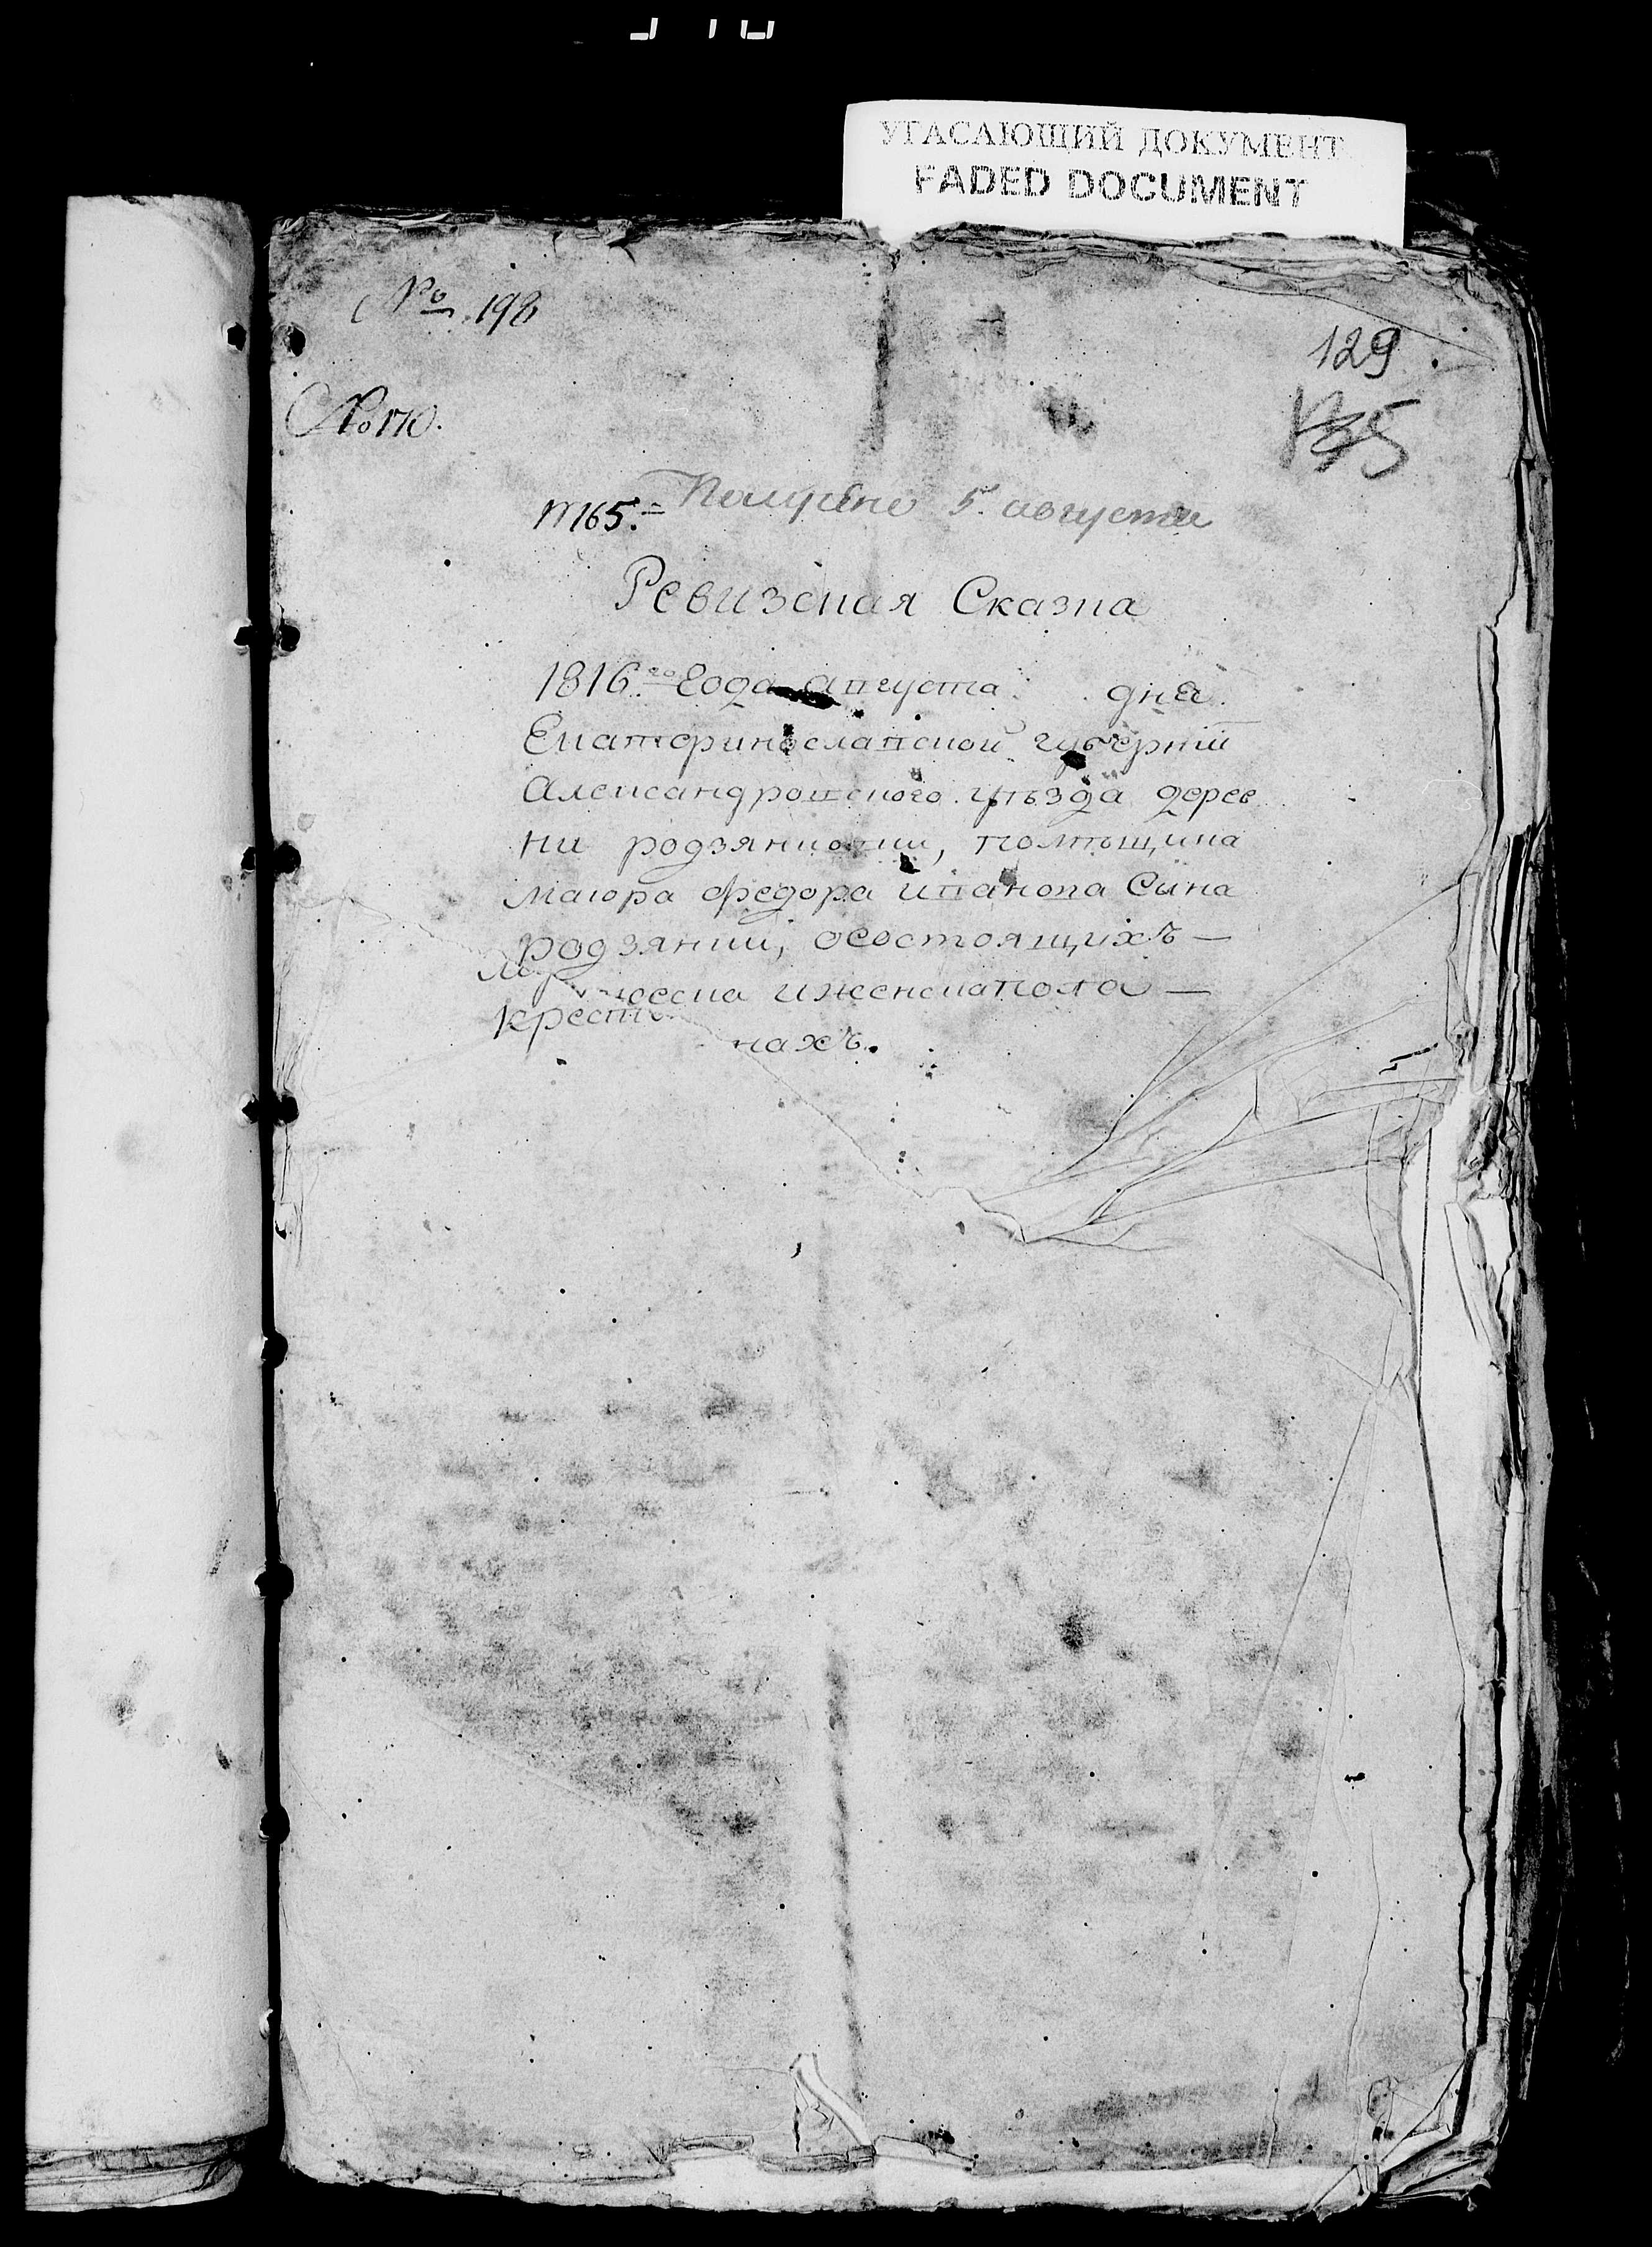 УГАСАЮЩИЙ ДОКУМЕНТ
FADED DOCUMENT
№ 198
129
№ 170.
165. 5 августа
Ревизская Сказка
1816го года августа дня
Екатеринославской губернии
Александровского уѣзда дерев
ни родзянковки, помѣщика
маіора федора иванова Сына
родзянки, осостоящихъ —
муж ческа иженска пола —
крестья
нахъ.